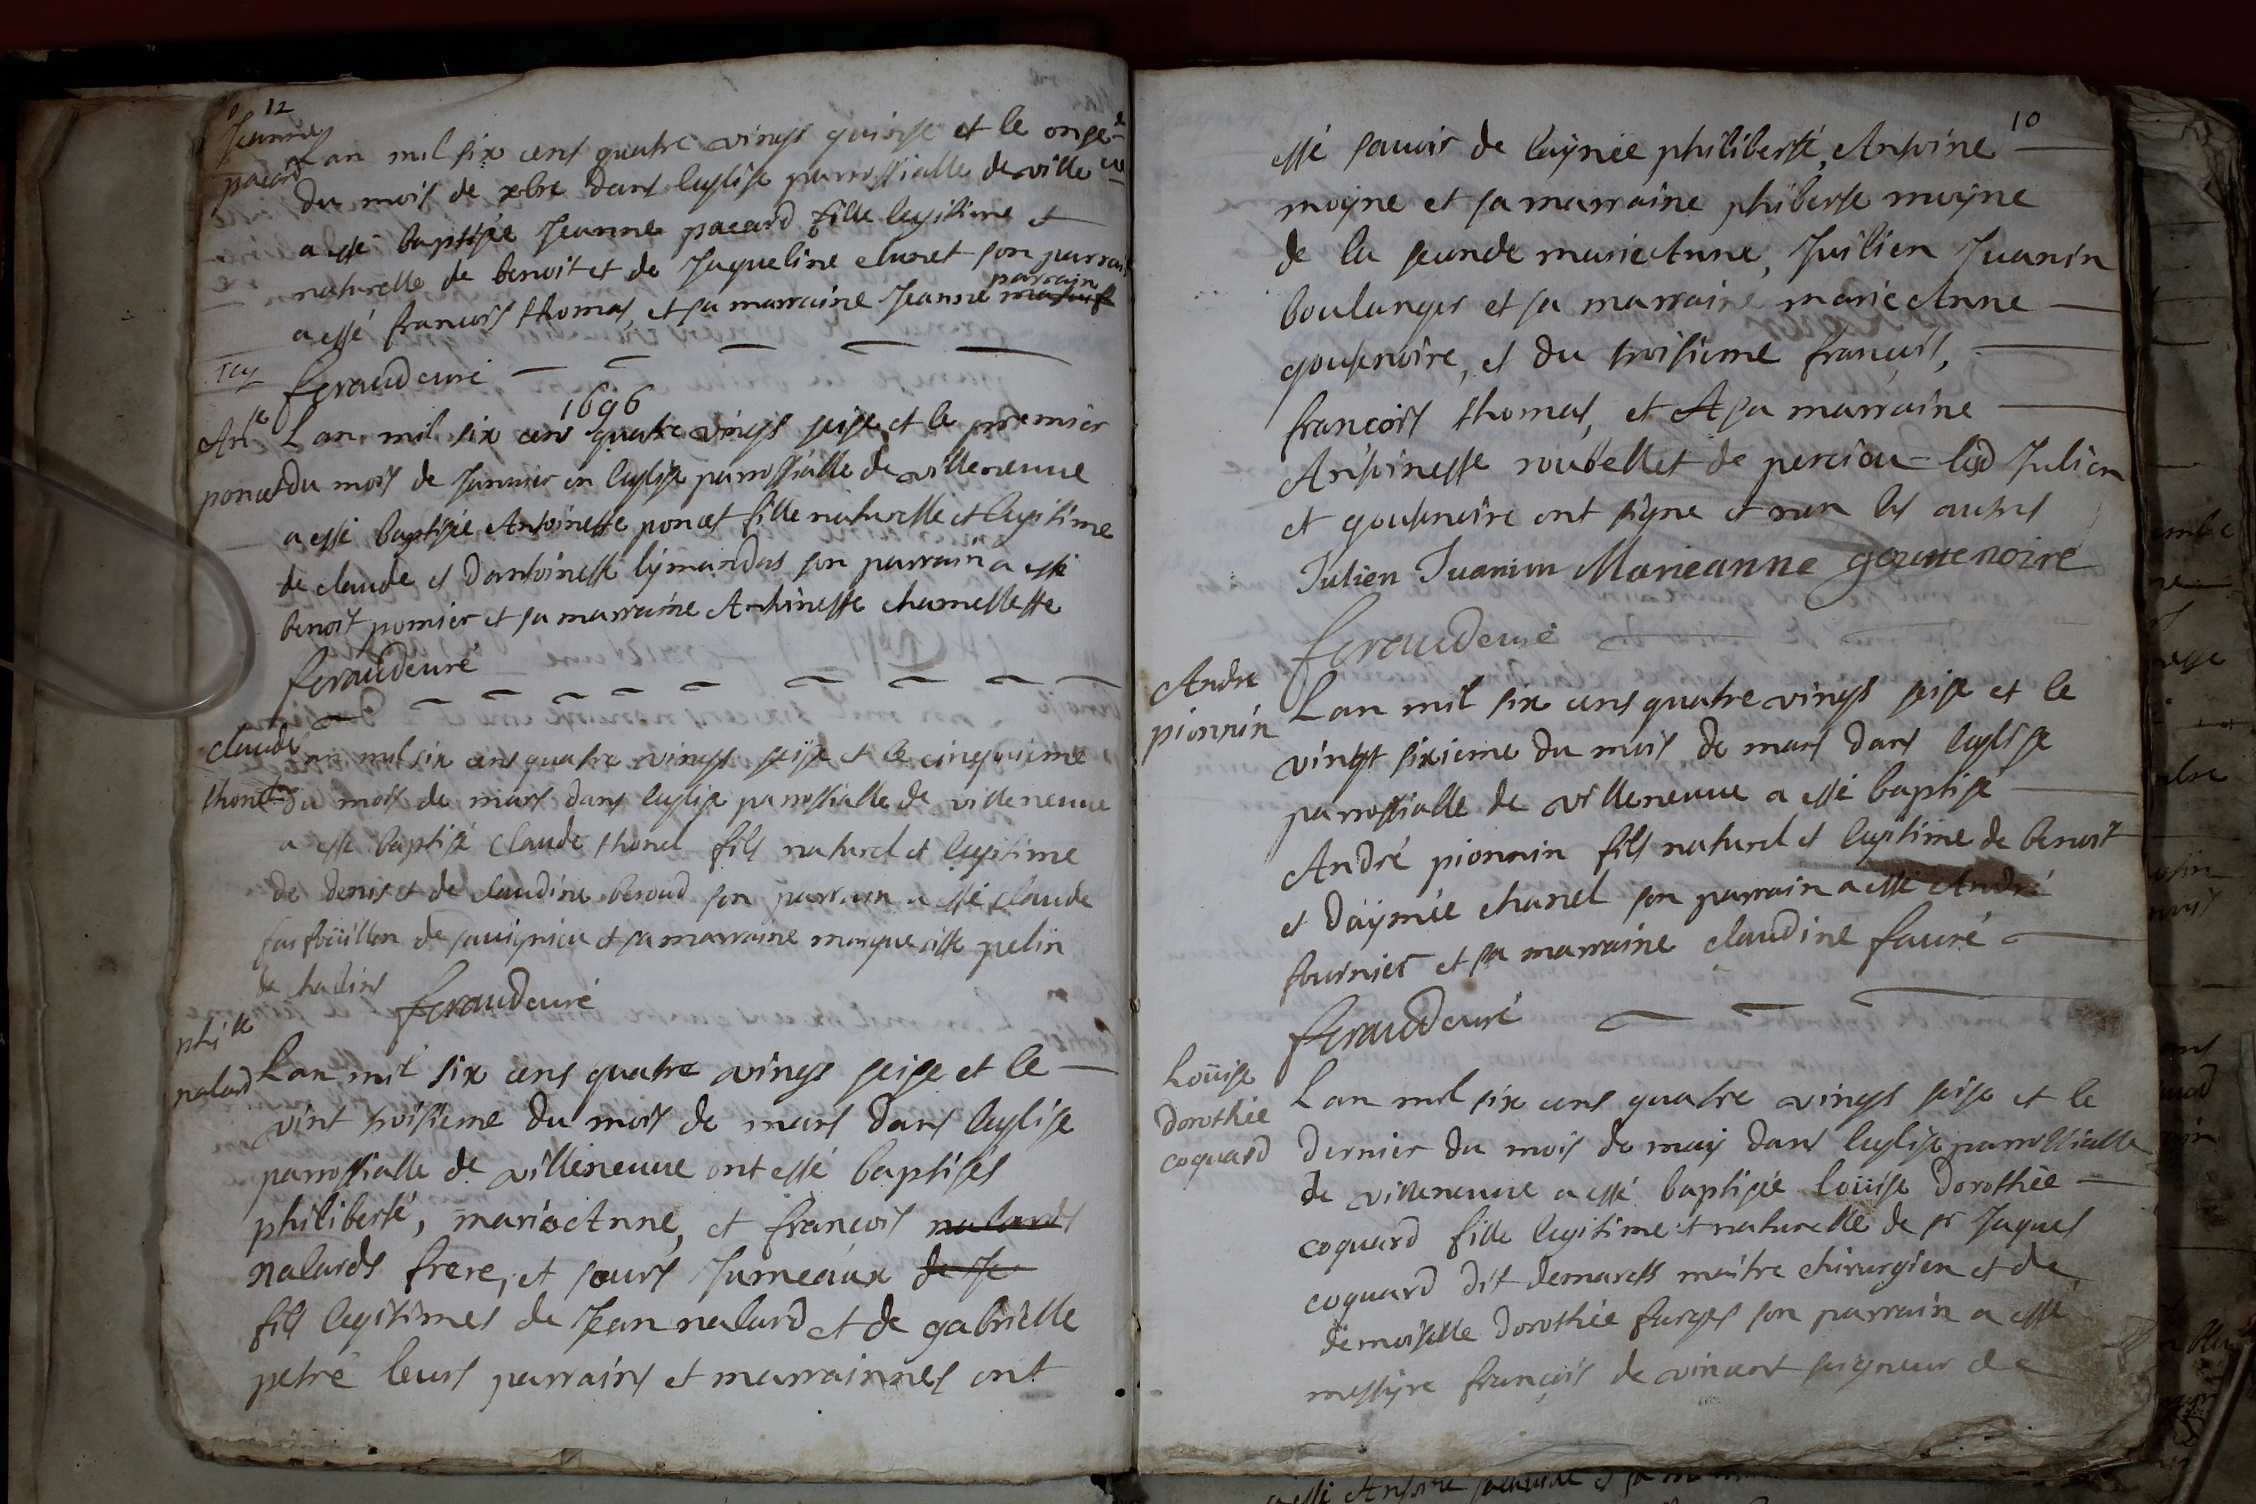 12
Jeanne
pacard
Lan mil six cens quatre vings quinse et le onse
du mois de xbre dans leglise parrossialle de ville
a esté baptisée Jeanne pacard fille legitime et
naturelle de benoit et de Jaqueline chanet son parrain
parrain
a esté francois thomas, et sa marraine Jeanne
feraud curé
1696
Ante
poncet
Lan mil six cens quatre vings seise et le premier
du mois de Janvier en leglise parrossialle de villeneuue
a esté baptisée Antoinette poncet fille naturelle et legitime
de claude et dantoinette lymandas son parrain a esté
benoit pomier et sa marraine Anthinette chamellette
feraud curé
claude
thonel
an mil six cens quatre vings seise et le cinquieme
du mois de mars dans leglise parrossialle de villeneuue
a esté baptisé Claude thonel fils naturel et legitime
de denis et de claudine beroud son parrain a esté claude
farfoüillon de sauignieu et sa marraine margueritte pelin
de chalins
feraud curé
phitte
nalard
Lan mil six cens quatre vings seise et le
vint troisieme du mois de mars dans leglise
parrossialle de villeneuue ont esté baptisés
philiberté, marie Anne, et francois nalards
nalards frere, et sœurs Jumeaux de Je
fils legitimes de Jean nalard et de gabrielle
petré leurs parrains et marrainnes ont
10
esté sauoir de laynée philiberté, Antoine
moyne et sa marraine philiberte moyne
de la seconde marie Anne, Juilien Juanin
boulanger et sa marraine marie Anne
goutenoire, et du troisieme francois,
francois thomas, et A sa marraine
Antoinette roubellet de perciou led Julien
et goutenoire ont signe et non les autres
Julien Juanin Marieanne gouttenoire
feraud curé
Andre
pionnin
Lan mil six cens quatre vings seise et le
vingt sixieme du mois de mars dans leglise
parrossialle de villeneuue a esté baptisé
André pionnin fils naturel et legitime de benoit
et daymée chanel son parrain a esté André
fournier et sa marraine claudine fauré
feraud curé
Loüise
dorothée
coquard
Lan mil six cens quatre vings seise et le
dernier du mois de may dans leglise parrossialle
de villeneuue a esté baptisée loüise dorothée
coquard fille legitime et naturelle de sr Jaques
coquard dit demarets maitre chirurgien et de
demoiselle dorothée farges son parrain a esté
messire françois de vincent seigneur de